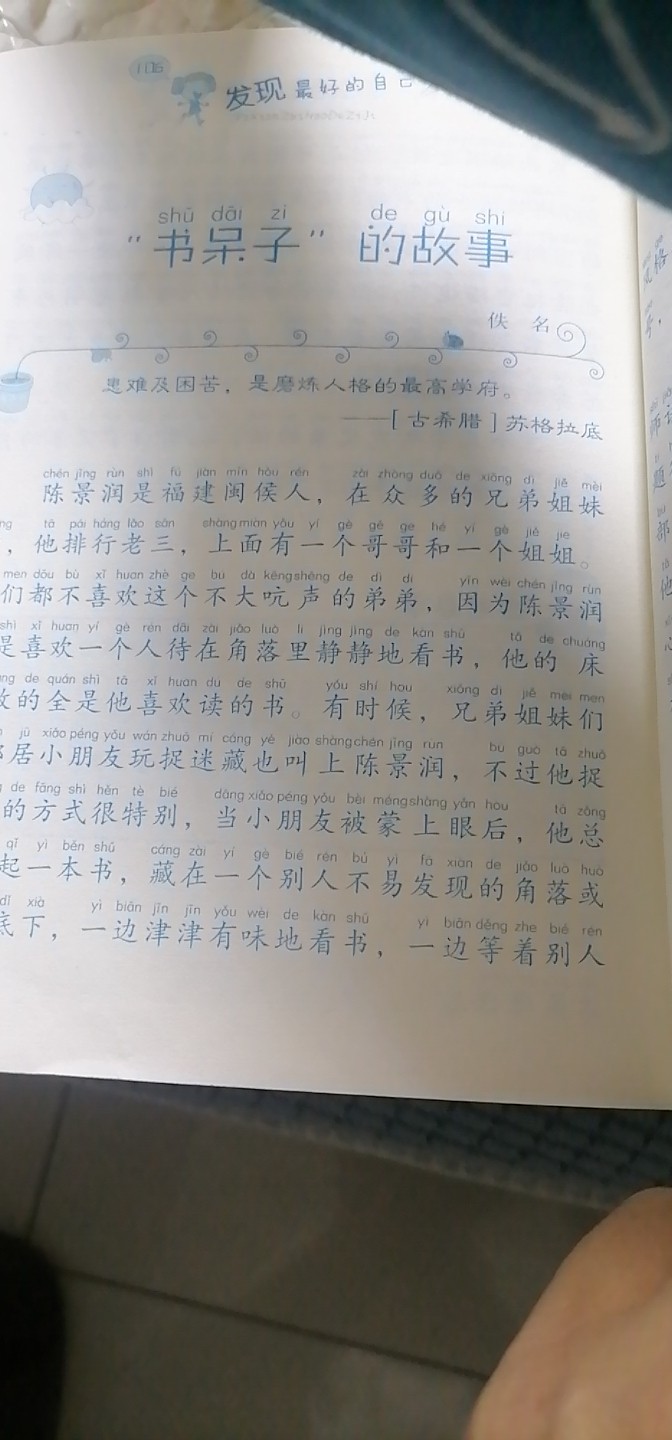 106
发现最好的自己
shū dāi zi de gù shi
“书呆子”的故事
佚 名
患难及困苦，是磨炼人格的最高学府。
——[古希腊]苏格拉底
chén jǐng rùn shì fú jiàn mǐn hòu rén zài zhòng duō de xiōng dì jiě mèi
陈景润是福建闽侯人，在众多的兄弟姐妹
tā pái háng lǎo sān shàng miàn yǒu yí gè gē ge hé yí gè jiě jie
，他排行老三，上面有一个哥哥和一个姐姐。
men dōu bù xǐ huan zhè ge bú dà kēng shēng de dì di yīn wèi chén jǐng rùn
们都不喜欢这个不大吭声的弟弟，因为陈景润
shì xǐ huan yí gè rén dāi zài jiǎo luò li jìng jìng de kàn shū tā de chuáng
是喜欢一个人待在角落里静静地看书，他的床
de quán shì tā xǐ huan dú de shū yǒu shí hou xiōng dì jiě mèi men
放的全是他喜欢读的书。有时候，兄弟姐妹们
jū xiǎo péng yǒu wán zhuō mí cáng yě jiào shàng chén jǐng rùn bú guò tā zhuō
邻居小朋友玩捉迷藏也叫上陈景润，不过他捉
de fāng shì hěn tè bié dāng xiǎo péng yǒu bèi méng shàng yǎn hòu tā zǒng
的方式很特别，当小朋友被蒙上眼后，他总
qǐ yì běn shū cáng zài yí gè bié rén bú yì fā xiàn de jiǎo luò huò
起一本书，藏在一个别人不易发现的角落或
dǐ xià yì biān jīn jīn yǒu wèi de kàn shū yì biān děng zhe bié rén
底下，一边津津有味地看书，一边等着别人